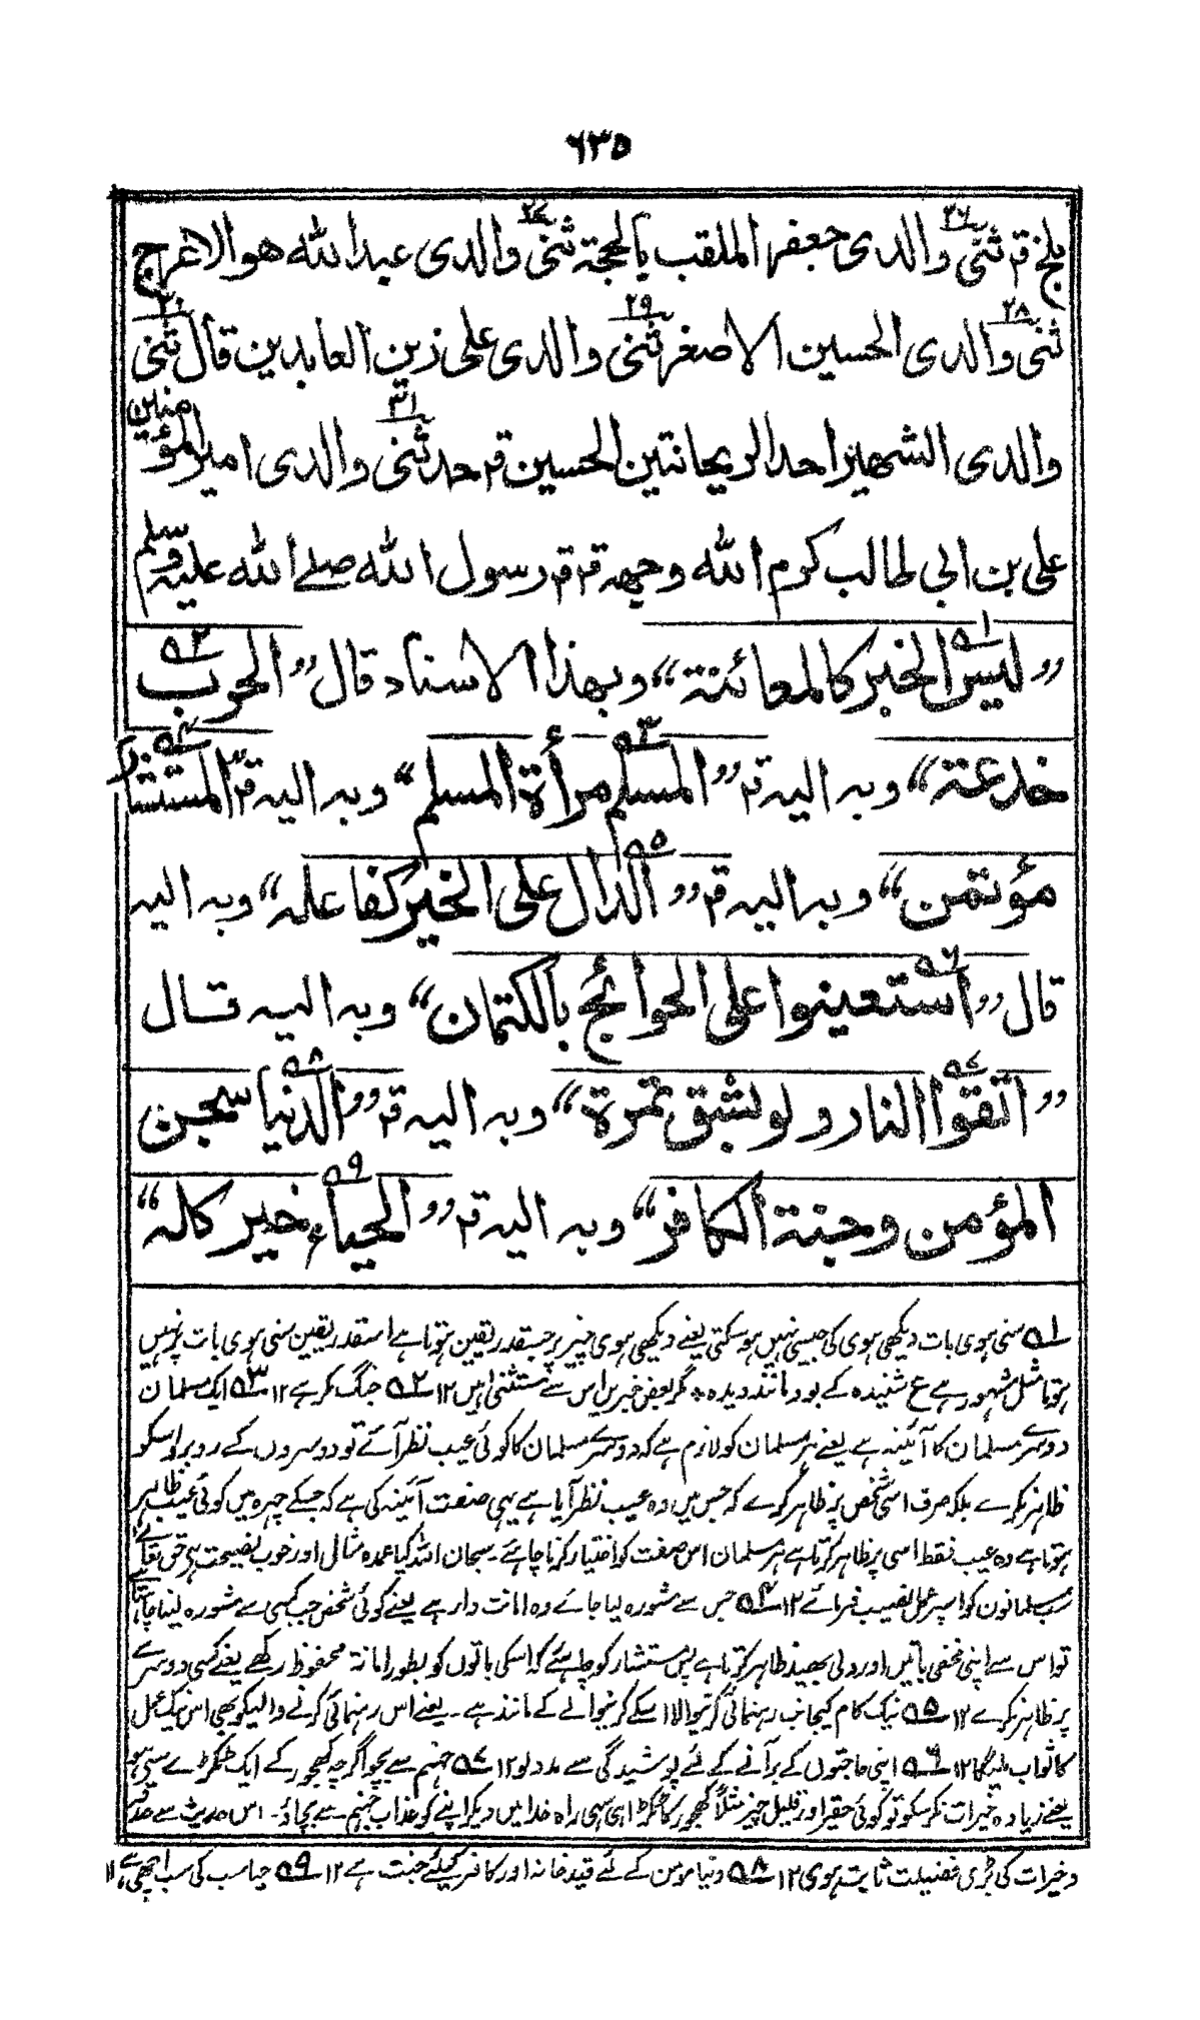 ٦٣٥
بلخ قـ ثنی ٢٦ والدی جعفر الملقب بالحجة ثنی ٢٧ والدی عبد الله هو الاعرج
ثنی ٢٨ والدی الحسین الاصغر ثنی ٢٩ والدی علی زین العابدین قال ثنی ٣٠
والدی الشهیر احد الریحانتین الحسین قـ حدثنی ٣١ والدی امیر المؤمنین
علی بن ابی طالب کرم الله وجهه قـ قـ رسول الله صلے الله علیه وسلم
”لیس ٥١ الخبر کالمعائنة“ وبهذا الاسناد قال ”الحرب ٥٢
خدعة“ وبه الیه قـ ”المسلم ٥٣ مرأة المسلم“ وبه الیه قـ ”المستشار ٥٤
مؤتمن“ وبه الیه قـ ”الدال ٥٥ علی الخیر کفاعله“ وبه الیه
قال ”استعینوا ٥٦ علی الحوائج بالکتمان“ وبه الیه قال
”اتقوا ٥٧ النار ولو بشق تمرة“ وبه الیه قـ ”الدنیا ٥٨ سجن
المؤمن وجنة الکافر“ وبه الیه قـ ”الحیاء ٥٩ خیر کله“
٥١ سنی ہوی بات دیکھی ہوی کی جیسی نہیں ہو سکتی یعنے دیکھی ہوی چیز پر جسقدر یقین ہوتا ہے اسقدر یقین سنی ہوی بات پر نہیں
ہوتا مثل مشہور ہے ع شنیدہ کے بود مانند دیدہ * مگر بعض خبریں اس سے مستثنیٰ ہیں ١٢ ٥٢ جنگ مکر ہے ١٢ ٥٣ ایک مسلمان
دوسرے مسلمان کا آئینہ ہے یعنے ہر مسلمان کو لازم ہے کہ دوسرے مسلمان کا کوئی عیب نظر آئے تو دوسروں کے روبرو اسکو
ظاہر نکرے بلکہ صرف اسی شخص پر ظاہر کرے کہ جس میں وہ عیب نظر آیا ہے یہی صنعت آئینہ کی ہے کہ جسکے چہرہ میں کوئی عیب ظاہر
ہوتا ہے وہ عیب فقط اسی پر ظاہر کرتا ہے ہر مسلمان اس صفت کو اختیار کرنا چاہئے۔ سبحان اللہ کیا عمدہ مثال اور خوب نصیحت ہے حق تعالے
سب مسلمانون کو اسپر عمل نصیب فرمائے ١٢ ٥٤ جس سے مشورہ لیا جائے وہ امانت دار ہے یعنے کوئی شخص جب کسی سے مشورہ لینا چاہتا
تو اس سے اپنی مخفی باتیں اور دلی بھید ظاہر کرتا ہے پس مستشار کو چاہئے کہ اسکی باتوں کو بطور امانۃ محفوظ رکھے یعنے کسی دوسرے
پر ظاہر نکرے ١٢ ٥٥ نیک کام کیجانب رہنمائی کرنیوالا اسکے کرنیوالے کے مانند ہے۔ یعنے اس رہنمائی کرنے والیکو بھی اس نیک عمل
کا ثواب ملیگا ١٢ ٥٦ اپنی حاجتوں کے برآنے کے لئے پوشیدگی سے مدد لو ١٢ ٥٧ جہنم سے بچو اگرچہ کھجور کے ایک ٹکڑے سے ہی ہو
یعنے زیادہ خیرات نکر سکو تو کوئی حقیر اور قلیل چیز مثلاً کھجور کا ٹکڑا ہی سہی راہ خدا میں دیکر اپنے کو عذاب جہنم سے بچاؤ۔ اس حدیث سے صدقہ
وخیرات کی بڑی فضیلت ثابت ہوی ١٢ ٥٨ دنیا مومن کے لئے قید خانہ اور کافر کیلئے جنت ہے ١٢ ٥٩ حیا سب کی سب اچھی ہے ١٢